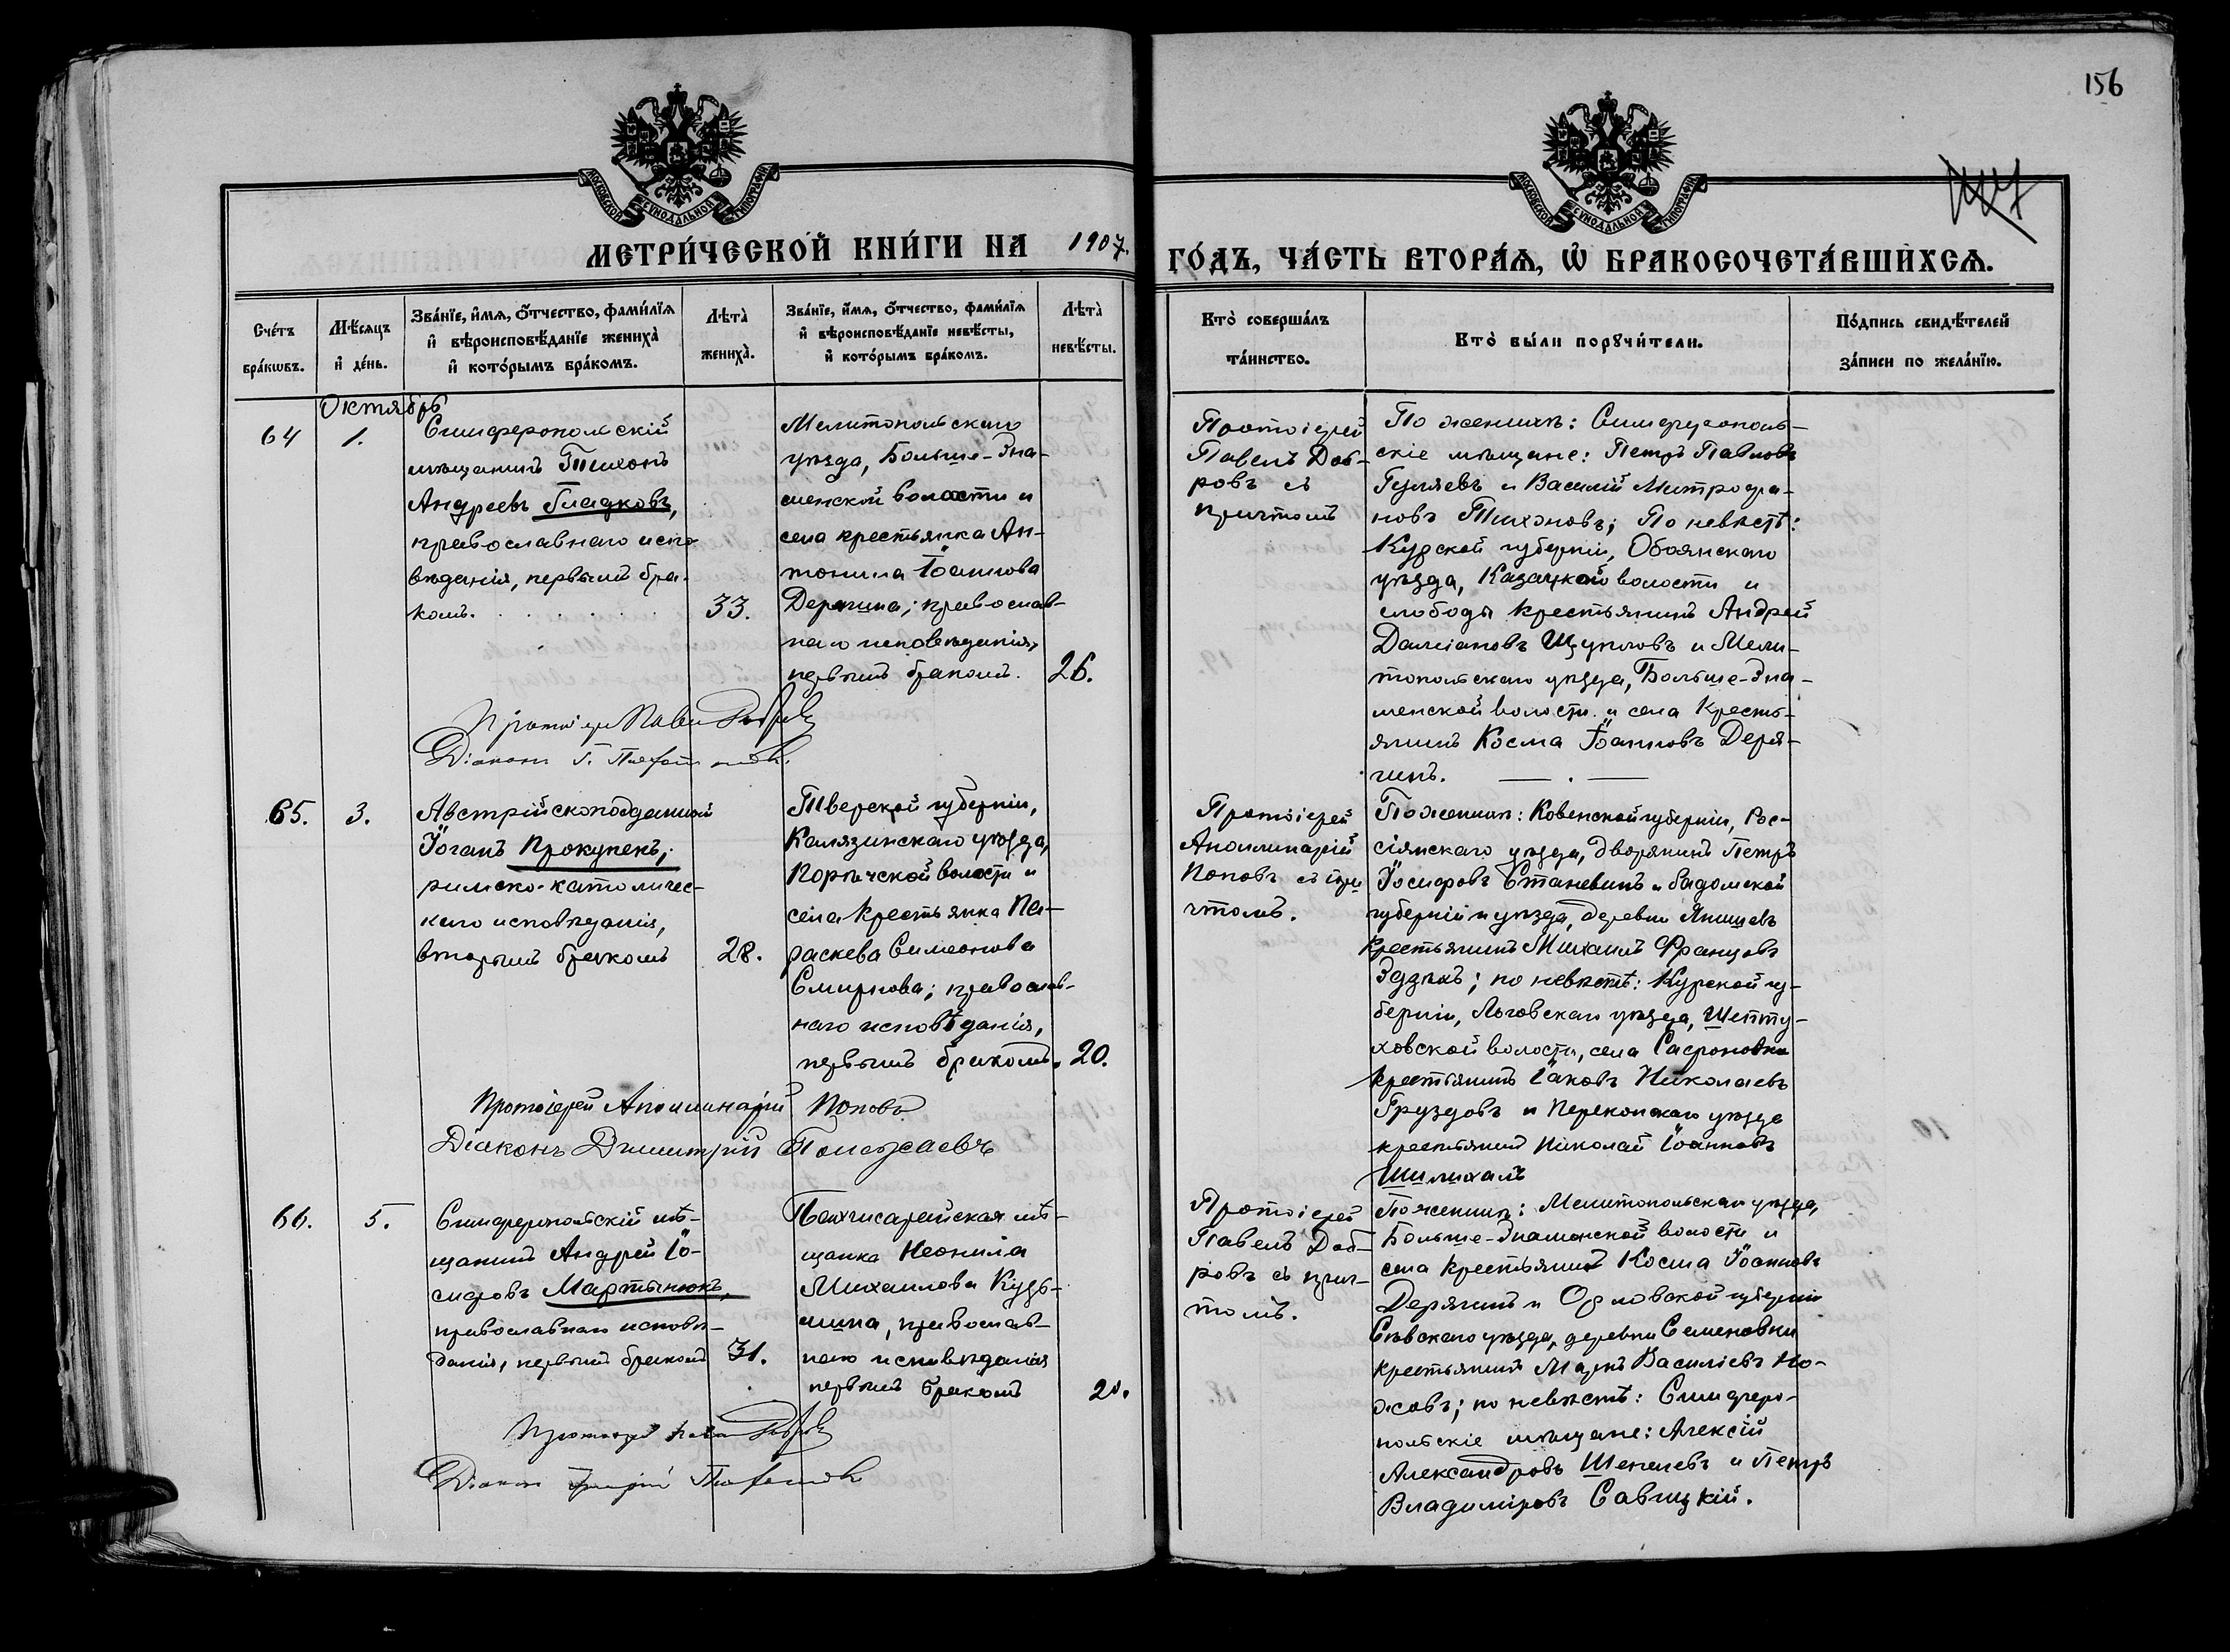 156
МОСКОВСКОЙ СУНОДАЛЬНОЙ ТИПОГРАФИИ
МОСКОВСКОЙ СУНОДАЛЬНОЙ ТИПОГРАФИИ
МЕТРИ́ЧЕСКОЙ КНИ́ГИ НА 1907.
ГО́ДЪ, ЧА́СТЬ ВТОРА́Ѧ, Ѽ БРАКОСОЧЕТА́ВШИХСѦ.
Сче́тъ бра́кѡвъ.
Мѣ́сяцъ и҆ де́нь.
Зва́нїе, и҆́мѧ, ѻ҆́тчество, фами́лїѧ
и҆ вѣроисповѣ́данїе жениха̀
и҆ кото́рымъ бра́комъ.
Лѣта̀ жениха̀.
Зва́нїе, и҆́мѧ, ѻ҆́тчество, фами́лїѧ
и҆ вѣроисповѣ́данїе невѣ́сты,
и҆ кото́рымъ бра́комъ.
Лѣта̀ невѣ́сты.
Кто̀ соверша́лъ
та́инство.
Кто̀ бы́ли порꙋчи́тели.
По́дпись свидѣ́телей
за́писи по жела́нїю.
Октябрь
64 1.
Симферопольскій
мѣщанинъ Тихонъ
Андреевъ Гладковъ,
православнаго испо-
вѣданія, первымъ бра-
комъ.
33.
Мелитопольскаго
уѣзда, Больше-Зна-
менской волости и
села крестьянка Ан-
тонина Іоаннова
Дерягина; православ-
наго исповѣданія,
первымъ бракомъ.
26.
Протоіерей
Павелъ Доб-
ровъ съ
причтомъ
По женихѣ: Симферополь-
скіе мѣщане: Петръ Павловъ
Гуляевъ и Василій Митрофа-
новъ Тихоновъ; По невѣстѣ:
Курской губерніи, Обоянскаго
уѣзда, Казацкой волости и
слободы крестьянинъ Андрей
Даміановъ Щукловъ и Мели-
топольскаго уѣзда, Больше-Зна-
менской волости и села кресть-
янинъ Косма Іоанновъ Деря-
гинъ.
Протоіерей Павелъ Добровъ
Діаконъ Г.
65. 3.
Австрійскоподданный
Іоганъ Прокупекъ,
римско-католичес-
каго исповѣданія,
вторымъ бракомъ
28.
Тверской губерніи,
Калязинскаго уѣзда,
Порѣчской волости и
села крестьянка Па-
раскева Симеонова
Смирнова; православ-
наго исповѣданія,
первымъ бракомъ.
20.
Протоіерей
Аполлинарій
Поповъ съ при
чтомъ.
По женихѣ: Ковенской губерніи, Рос-
сіянскаго уѣзда, дворянинъ Петръ
Іосифовъ Станевичъ и Радомской
губерніи и уѣзда, деревни Янишевъ
крестьянинъ Михаилъ Францовъ
; по невѣстѣ: Курской гу-
берніи, Льговскаго уѣзда, Шепту-
ховской волости, села Сафоновки
крестьянинъ Іаковъ Николаевъ
Груздовъ и Перекопскаго уѣзда
крестьянинъ Николай Іоанновъ
Шилихалъ
Протоіерей Аполлинарій Поповъ
Діаконъ Димитрій Полежаевъ
66. 5.
Симферопольскій мѣ-
щанинъ Андрей Іо-
сифовъ Мартынюкъ,
православнаго исповѣ-
данія, первымъ бракомъ
31.
Бахчисарайская мѣ-
щанка Неонила
Михаилова Кузь-
мина, православ-
наго исповѣданія
первымъ бракомъ
20.
Протоіерей
Павелъ Доб-
ровъ съ прич-
томъ.
По женихѣ: Мелитопольскаго уѣзда,
Больше-Знаменской волости и
села крестьянинъ Косма Іоанновъ
Дерягинъ и Орловской губерніи
Сѣвскаго уѣзда, деревни Семеновки
крестьянинъ Маркъ Василіевъ Но-
жовъ; по невѣстѣ: Симферо-
польскіе мѣщане: Алексій
Александровъ Шекелевъ и Петръ
Владиміровъ Савицкій.
Протоіерей Павелъ Добровъ
Діаконъ